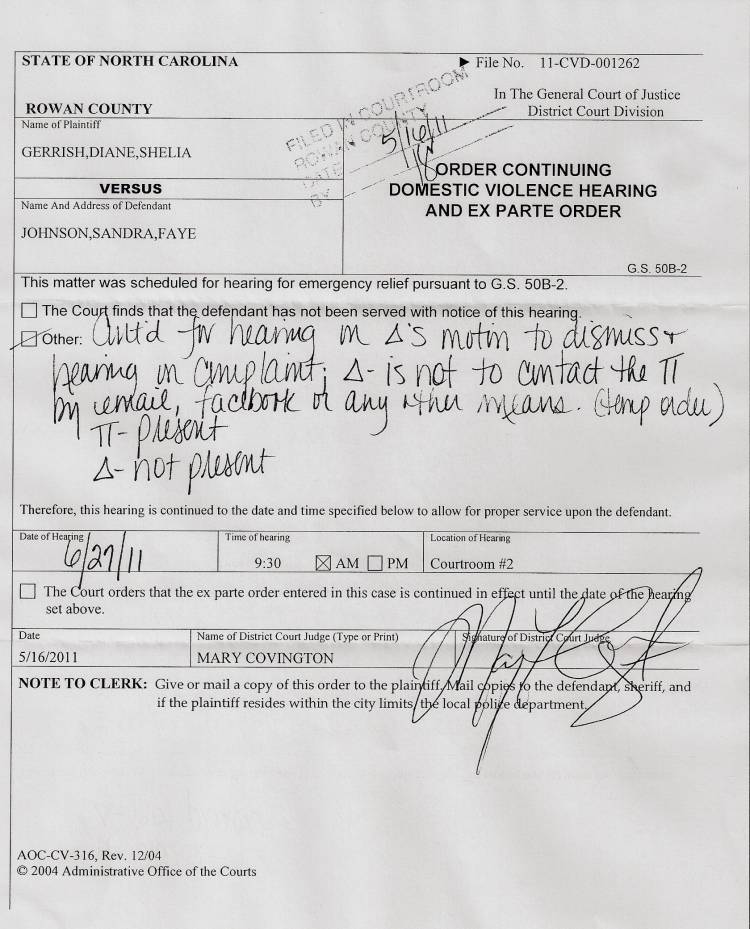 STATE OF NORTH CAROLINA
► File No. 11-CVD-001262
ROWAN COUNTY
In The General Court of Justice
District Court Division
FILED IN COURTROOM
ROWAN COUNTY
DATE 5/16/11
BY
Name of Plaintiff
GERRISH,DIANE,SHELIA
VERSUS
Name And Address of Defendant
JOHNSON,SANDRA,FAYE
ORDER CONTINUING
DOMESTIC VIOLENCE HEARING
AND EX PARTE ORDER
G.S. 50B-2
This matter was scheduled for hearing for emergency relief pursuant to G.S. 50B-2.
The Court finds that the defendant has not been served with notice of this hearing.
Other: Cont'd for hearing on Δ's motion to dismiss +
hearing on complaint; Δ- is not to contact the π
by email, facebook or any other means. (temp order)
π- present
Δ- not present
Therefore, this hearing is continued to the date and time specified below to allow for proper service upon the defendant.
Date of Hearing
6/27/11
Time of hearing
9:30 ☒ AM ☐ PM
Location of Hearing
Courtroom #2
The Court orders that the ex parte order entered in this case is continued in effect until the date of the hearing
set above.
Date
5/16/2011
Name of District Court Judge (Type or Print)
MARY COVINGTON
Signature of District Court Judge
NOTE TO CLERK: Give or mail a copy of this order to the plaintiff. Mail copies to the defendant, sheriff, and
if the plaintiff resides within the city limits, the local police department.
AOC-CV-316, Rev. 12/04
© 2004 Administrative Office of the Courts